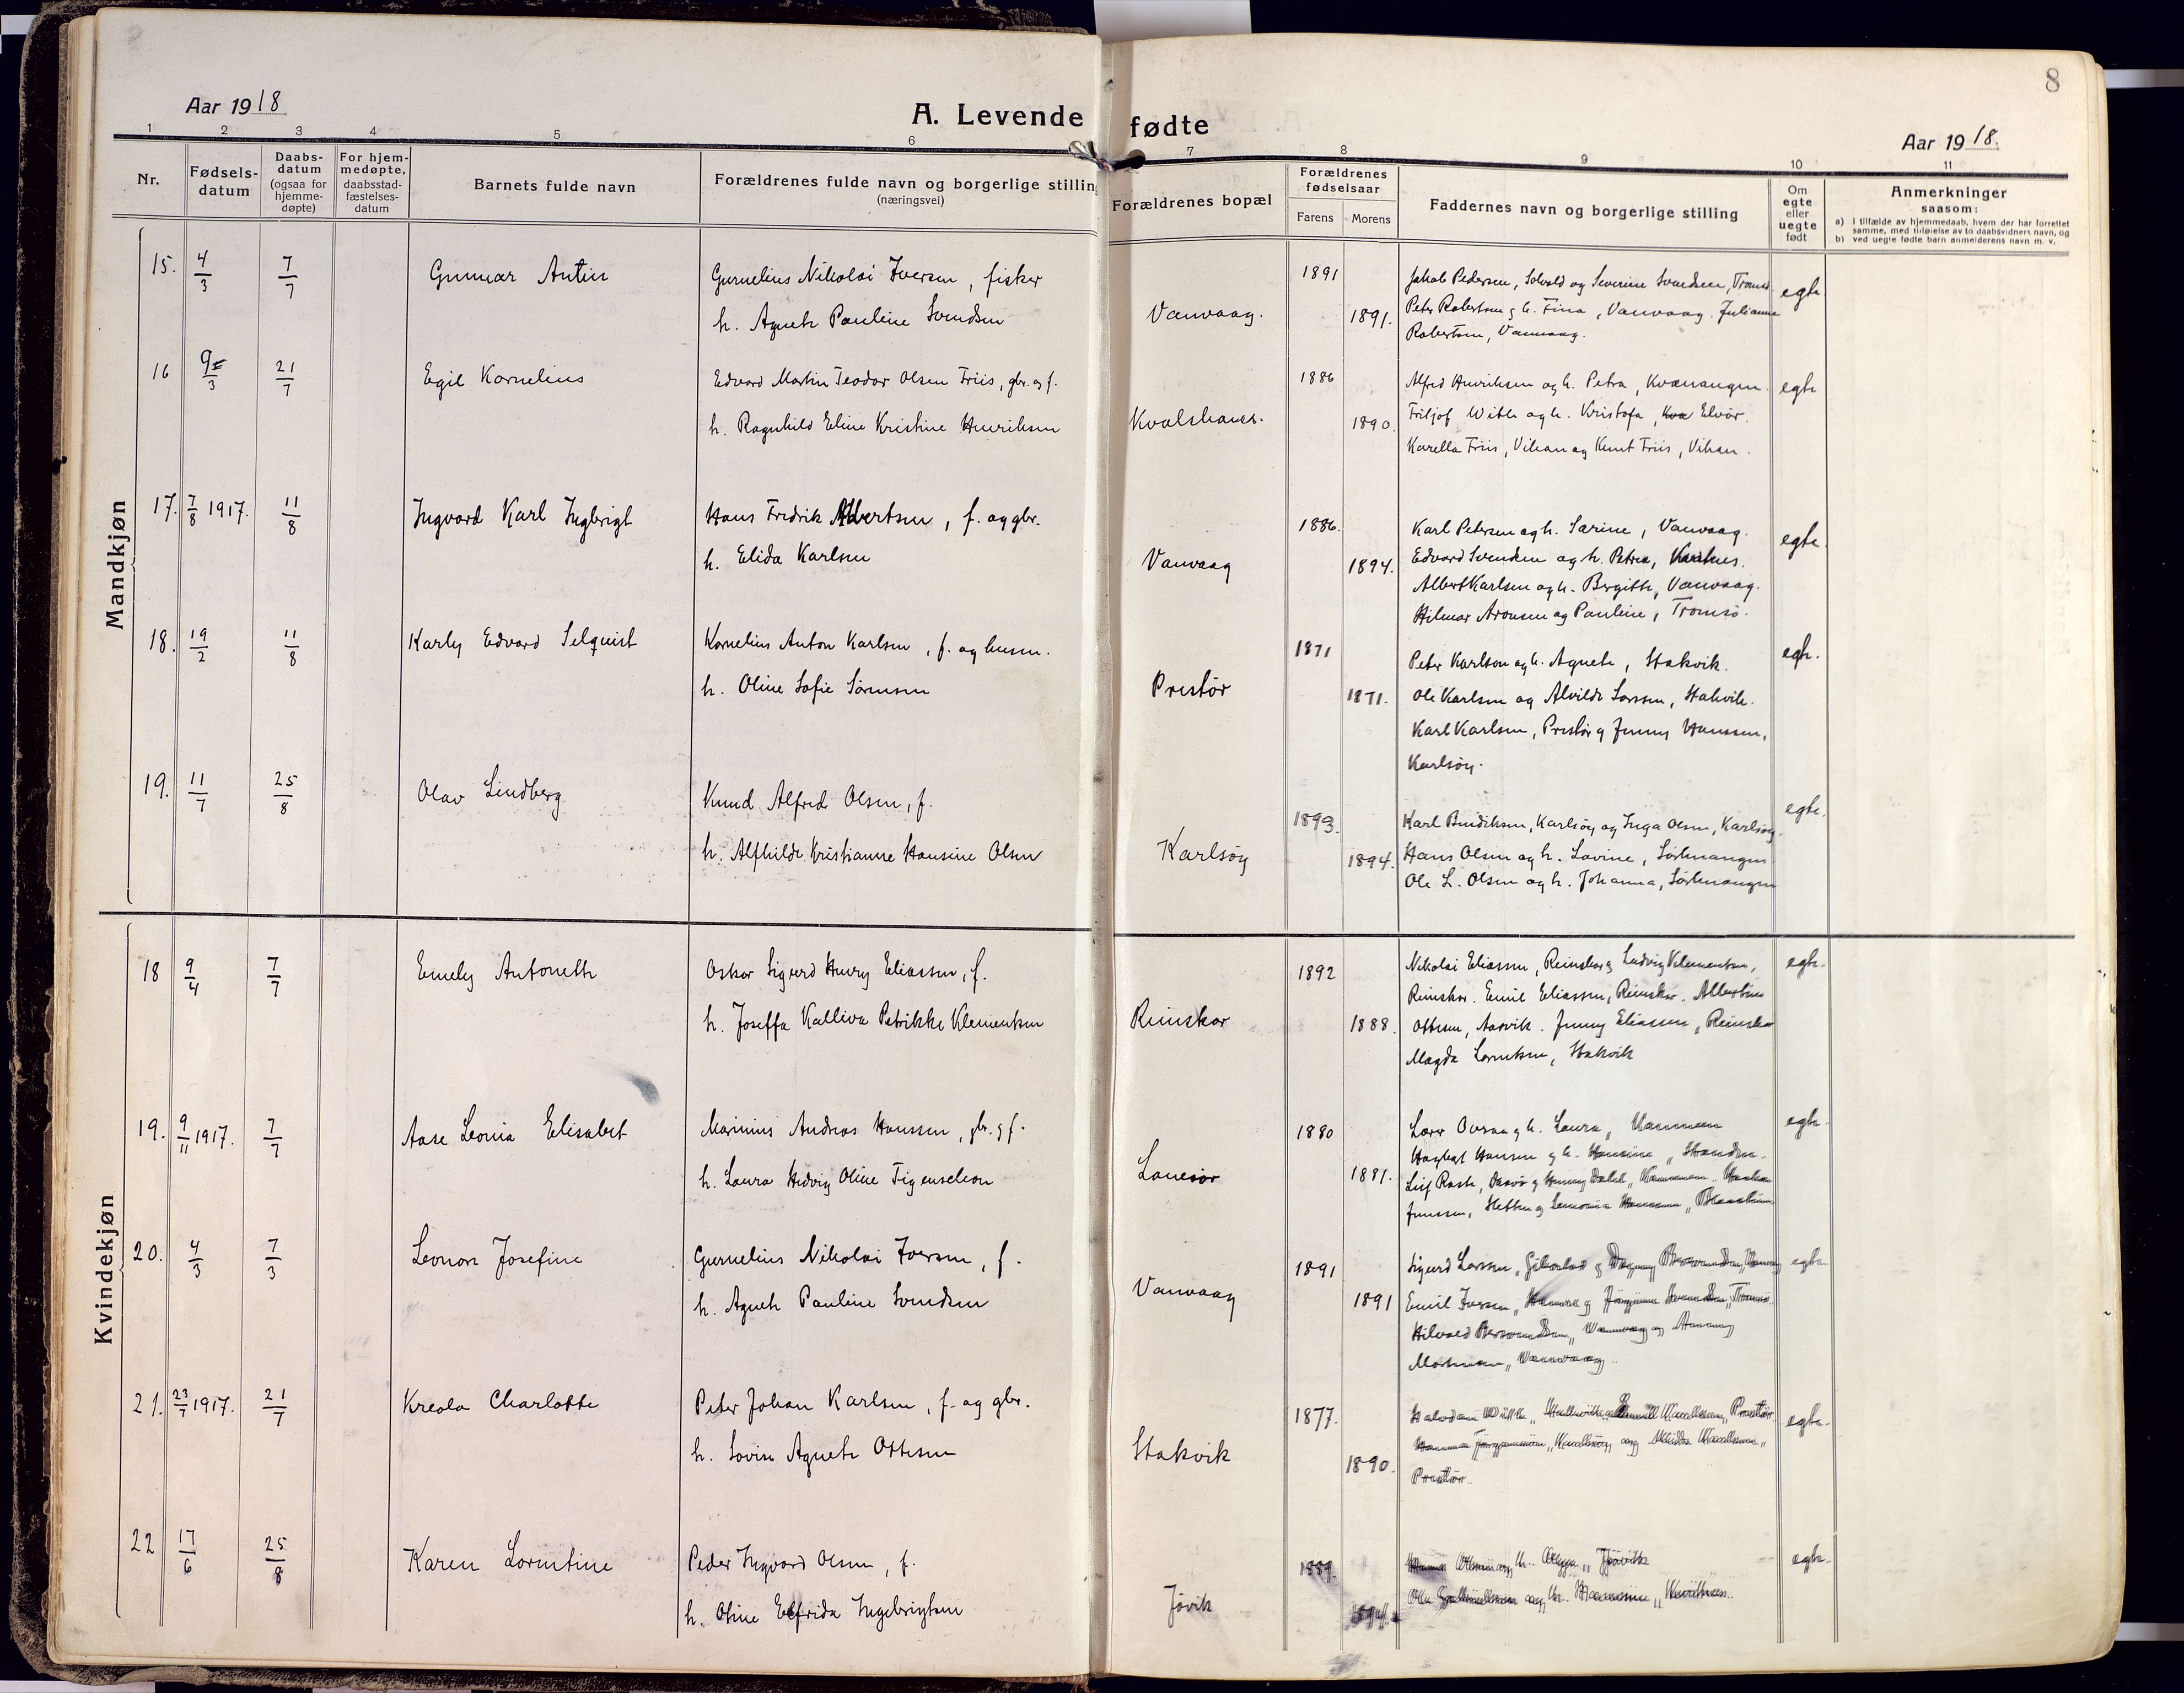 Aar 1918
A. Levende fødte
8
Aar 1918.
1 2 3 4 5 6 7 8 9 10 11
Nr.
Fødsels-
datum
Daabs-
datum
(ogsaa for
hjemme-
døpte)
For hjem-
medøpte,
daabsstad-
fæstelses-
datum
Barnets fulde navn
Forældrenes fulde navn og borgerlige stilling
(næringsvei)
Forældrenes bopæl
Forældrenes
fødselsaar
Farens Morens
Faddernes navn og borgerlige stilling
Om
egte
eller
uegte
født
Anmerkninger
saasom:
a) i tilfælde av hjemmedaab, hvem der har forrettet
samme, med tilføielse av to daabsvidners navn, og
b) ved uegte fødte barn anmelderens navn m. v.
Mandkjøn
15. 4/3 7/7 Gunnar Antin
Gurnelius Nikolai Iversen, fisker
h. Agnete Pauline Svendsen
Vanvaag.
1891
1891.
Jakob Pedersen, Solvold og Severine Svendsen, Tromsø.
Peter Robertsen g h. Fina, Vanvaag. Julianne
Robertsen, Vanvaag.
egte
16 9/3 21/7 Egil Kornelius
Edvard Martin Teodor Olsen Friis, gbr. og f.
h. Ragnhild Eline Kristine Henriksen
Kvalshaus.
1886
1890.
Alfred Henriksen og h. Petra, Kvænangen.
Fritjof With og h. Kristofa, Elvör.
Karella Friis, Vikan og Kunt Friis, Vikan.
egte
17. 7/8 1917. 11/8 Ingvard Karl Ingbrigt
Hans Fredrik Albertsen, f. og gbr.
h. Elida Karlsen
Vanvaag
1886.
1894.
Karl Petersen og h. Sarine, Vanvaag.
Edvard Svendsen og h. Petra,
Albert Karlsen og h. Bergitte, Vanvaag.
Hilmar Aronsen og Pauline, Tromsø.
egte.
18. 19/2 11/8 Karly Edvard Selquist
Kornelius Anton Karlsen, f. og husm.
h. Oline Sofie Sørensen
Prestör
1871
1871.
Peter Karlsen og h. Agnete, Stakvik.
Ole Karlsen og Alvilde Larssen, Stakvik.
Karl Karlsen, Prestör g Jenny Hanssen,
Karlsöy.
egte.
19. 11/7 25/8 Olav Lindberg
Knud Alfred Olsen, f.
h. Alfhilde Kristianne Hansine Olsen
Karlsöy
1893.
1894.
Karl Bendiksen, Karlsöy og Inga Olsen, Karlsöy.
Hans Olsen og h. Lovine, Sörlenangen
Ole L. Olsen og h. Johanna, Sörlenangen
egte.
Kvindekjøn
18 9/4 7/7 Emely Antonette
Oskar Sigurd Henry Eliassen, f.
h. Joseffa Kalliva Petrikke Klementsen
Reinskar
1892
1888.
Nikolai Eliassen, Reinskar g Ludvig Klementsen,
Reinskar. Emil Eliassen, Reinskar. Albertine
Ottesen, Aasvik. Jenny Eliassen, Reinskar
Magda Lorentsen, Stakvik
egte.
19. 9/11 1917. 7/7 Aase Leonia Elisabet
Marinius Andreas Hanssen, gbr. g f.
h. Laura Hedvig Oline Figenschou
Lanesör
1880
1881.
g h. Laura,
Hansen g h. Hansine,
Leif
Jenssen,
egte.
20. 4/3 7/3 Leonore Josefine
Gurnelius Nikolai Iversen, f.
h. Agnete Pauline Svendsen
Vanvaag
1891
1891
Sigurd Larssen,
Emil Iversen,
Vannvaag og
Mortensen, Vannvaag.
egte
21. 23/7 1917. 21/7 Kreola Charlotte
Peter Johan Karlsen, f. og gbr.
h. Lovise Agnete Ottesen
Stakvik
1877.
1890.
Halvdan With, Prestör.
Karlsöy, og Karlsen,
Prestör.
egte.
22 17/6 25/8 Karen Lorentine
Peder Ingvard Olsen, f.
h. Oline Elfrida Ingebrigtsen
Jövik
1889.
Ottesen og h. Jövik
Ole og h. Hansine,
egte.